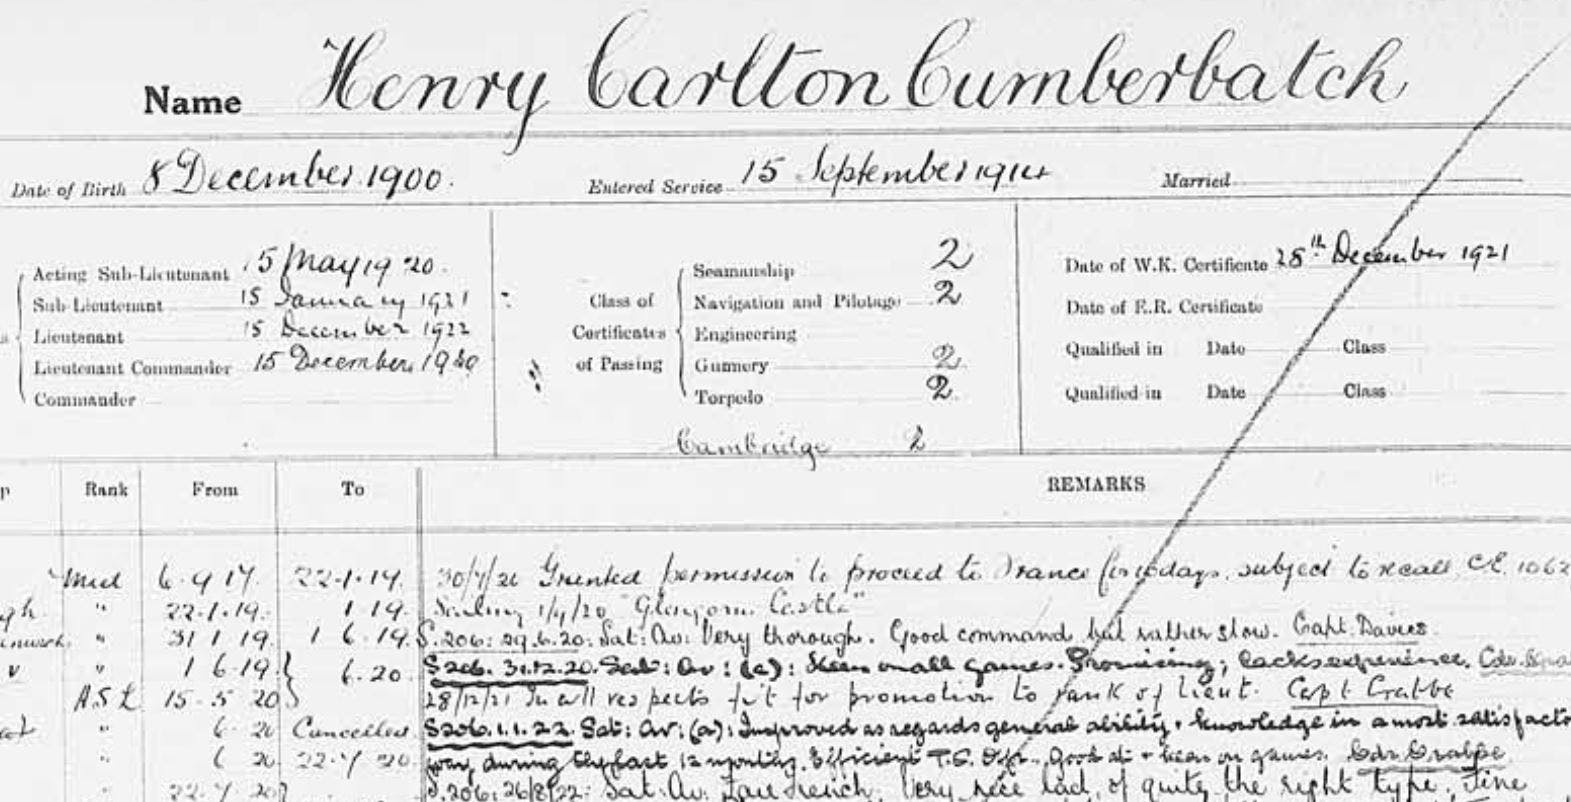 Name Henry Carlton Cumberbatch
Date of Birth 8 December 1900. Entered Service 15 September 1914 Married
Acting Sub-Lieutenant 15 May 1920.
Sub-Lieutenant 15 January 1921
Lieutenant 15 December 1922
Lieutenant Commander 15 December 1930
Commander
Class of Certificates of Passing
Seamanship 2
Navigation and Pilotage 2
Engineering
Gunnery 2
Torpedo 2
Cambridge 2
Date of W.K. Certificate 28th December 1921
Date of E.R. Certificate
Qualified in Date Class
Qualified in Date Class
Rank From To REMARKS
Mid 6.9.17. 22.1.19. Granted permission to proceed to France for days, subject to recall, 1062
" 22.1.19. 1 19. 1/4/20 Castle"
" 31 1 19. 1 6.19. S.206: 29.6.20: Sat: Av: Very thorough. Good command but rather slow. Capt. Davies.
" 1 6.19. 6.20. S206. 31.12.20. Sat: Av: (a): Keen on all games. Promising; lacks experience. Cdr.
A.S.L. 15.5 20 28/12/21 In all respects fit for promotion to rank of Lieut. Capt Crabbe
" 6. 20 Cancelled S206.1.1.22. Sat: Av: (a): Improved as regards general ability & knowledge in a most satisfacto
" 6 20. 22.7 20. way, during the past 12 months. Efficient T.C. Offr. Good at & keen on games. Cdr. Crabbe
" 22.7 20 S.206: 26/8/22: Sat: Av: French. Very nice lad, of quite the right type, fine